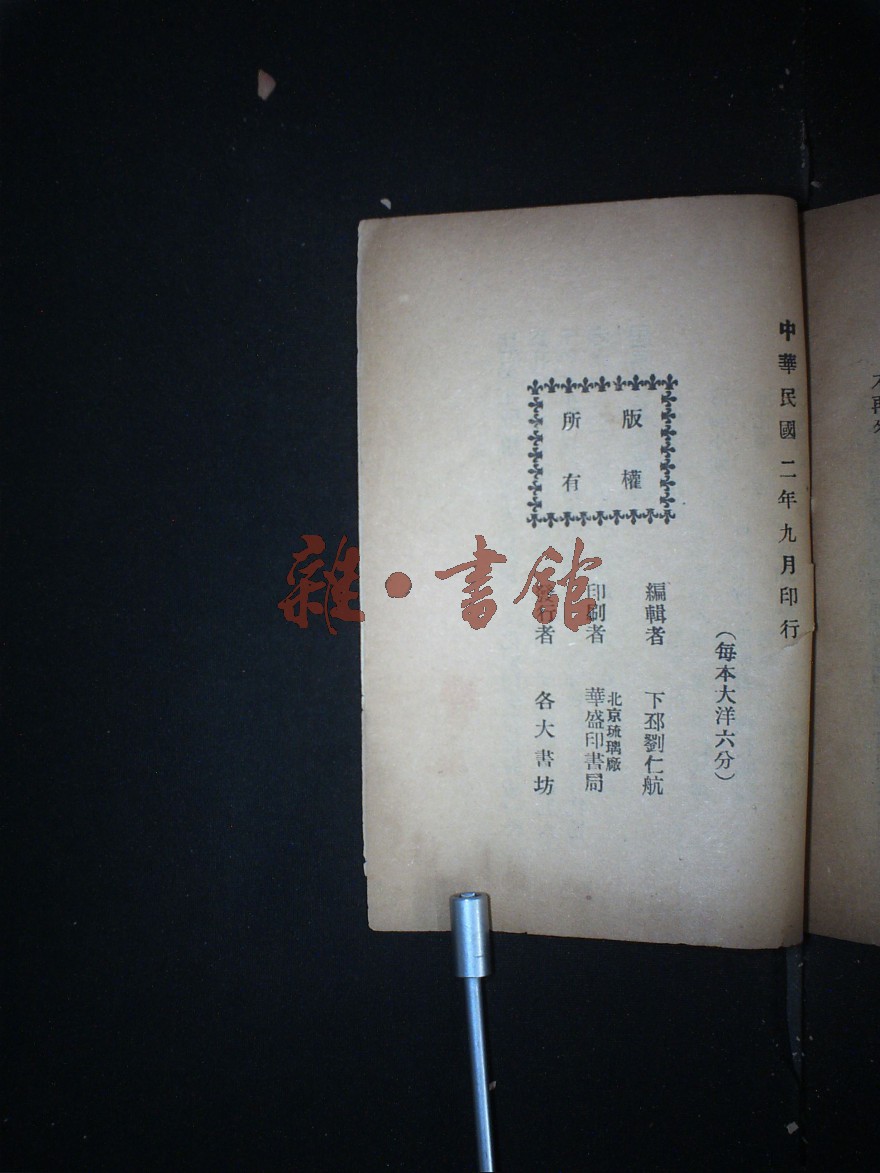 中華民國二年九月印行
(每本大洋六分)
版權
所有
編輯者 下邳劉仁航
印刷者 北京琉璃廠
華盛印書局
行者 各大書坊
雜·書館
不再